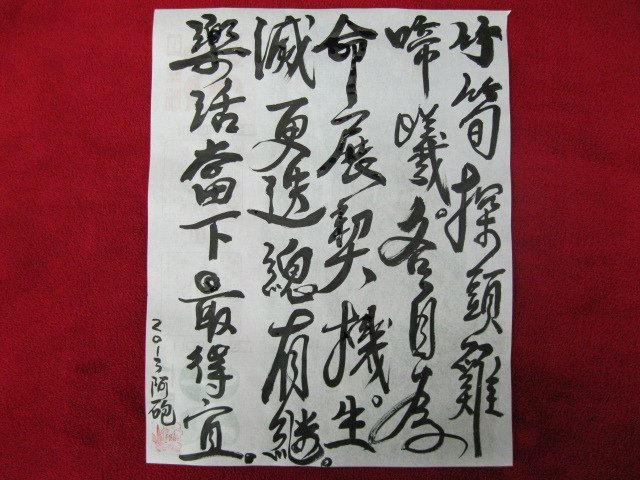 竹筍探頭雞
啼曦。各自為
命展契機。生
滅更迭總有繼。
樂活當下。最得宜。
2013阿砲